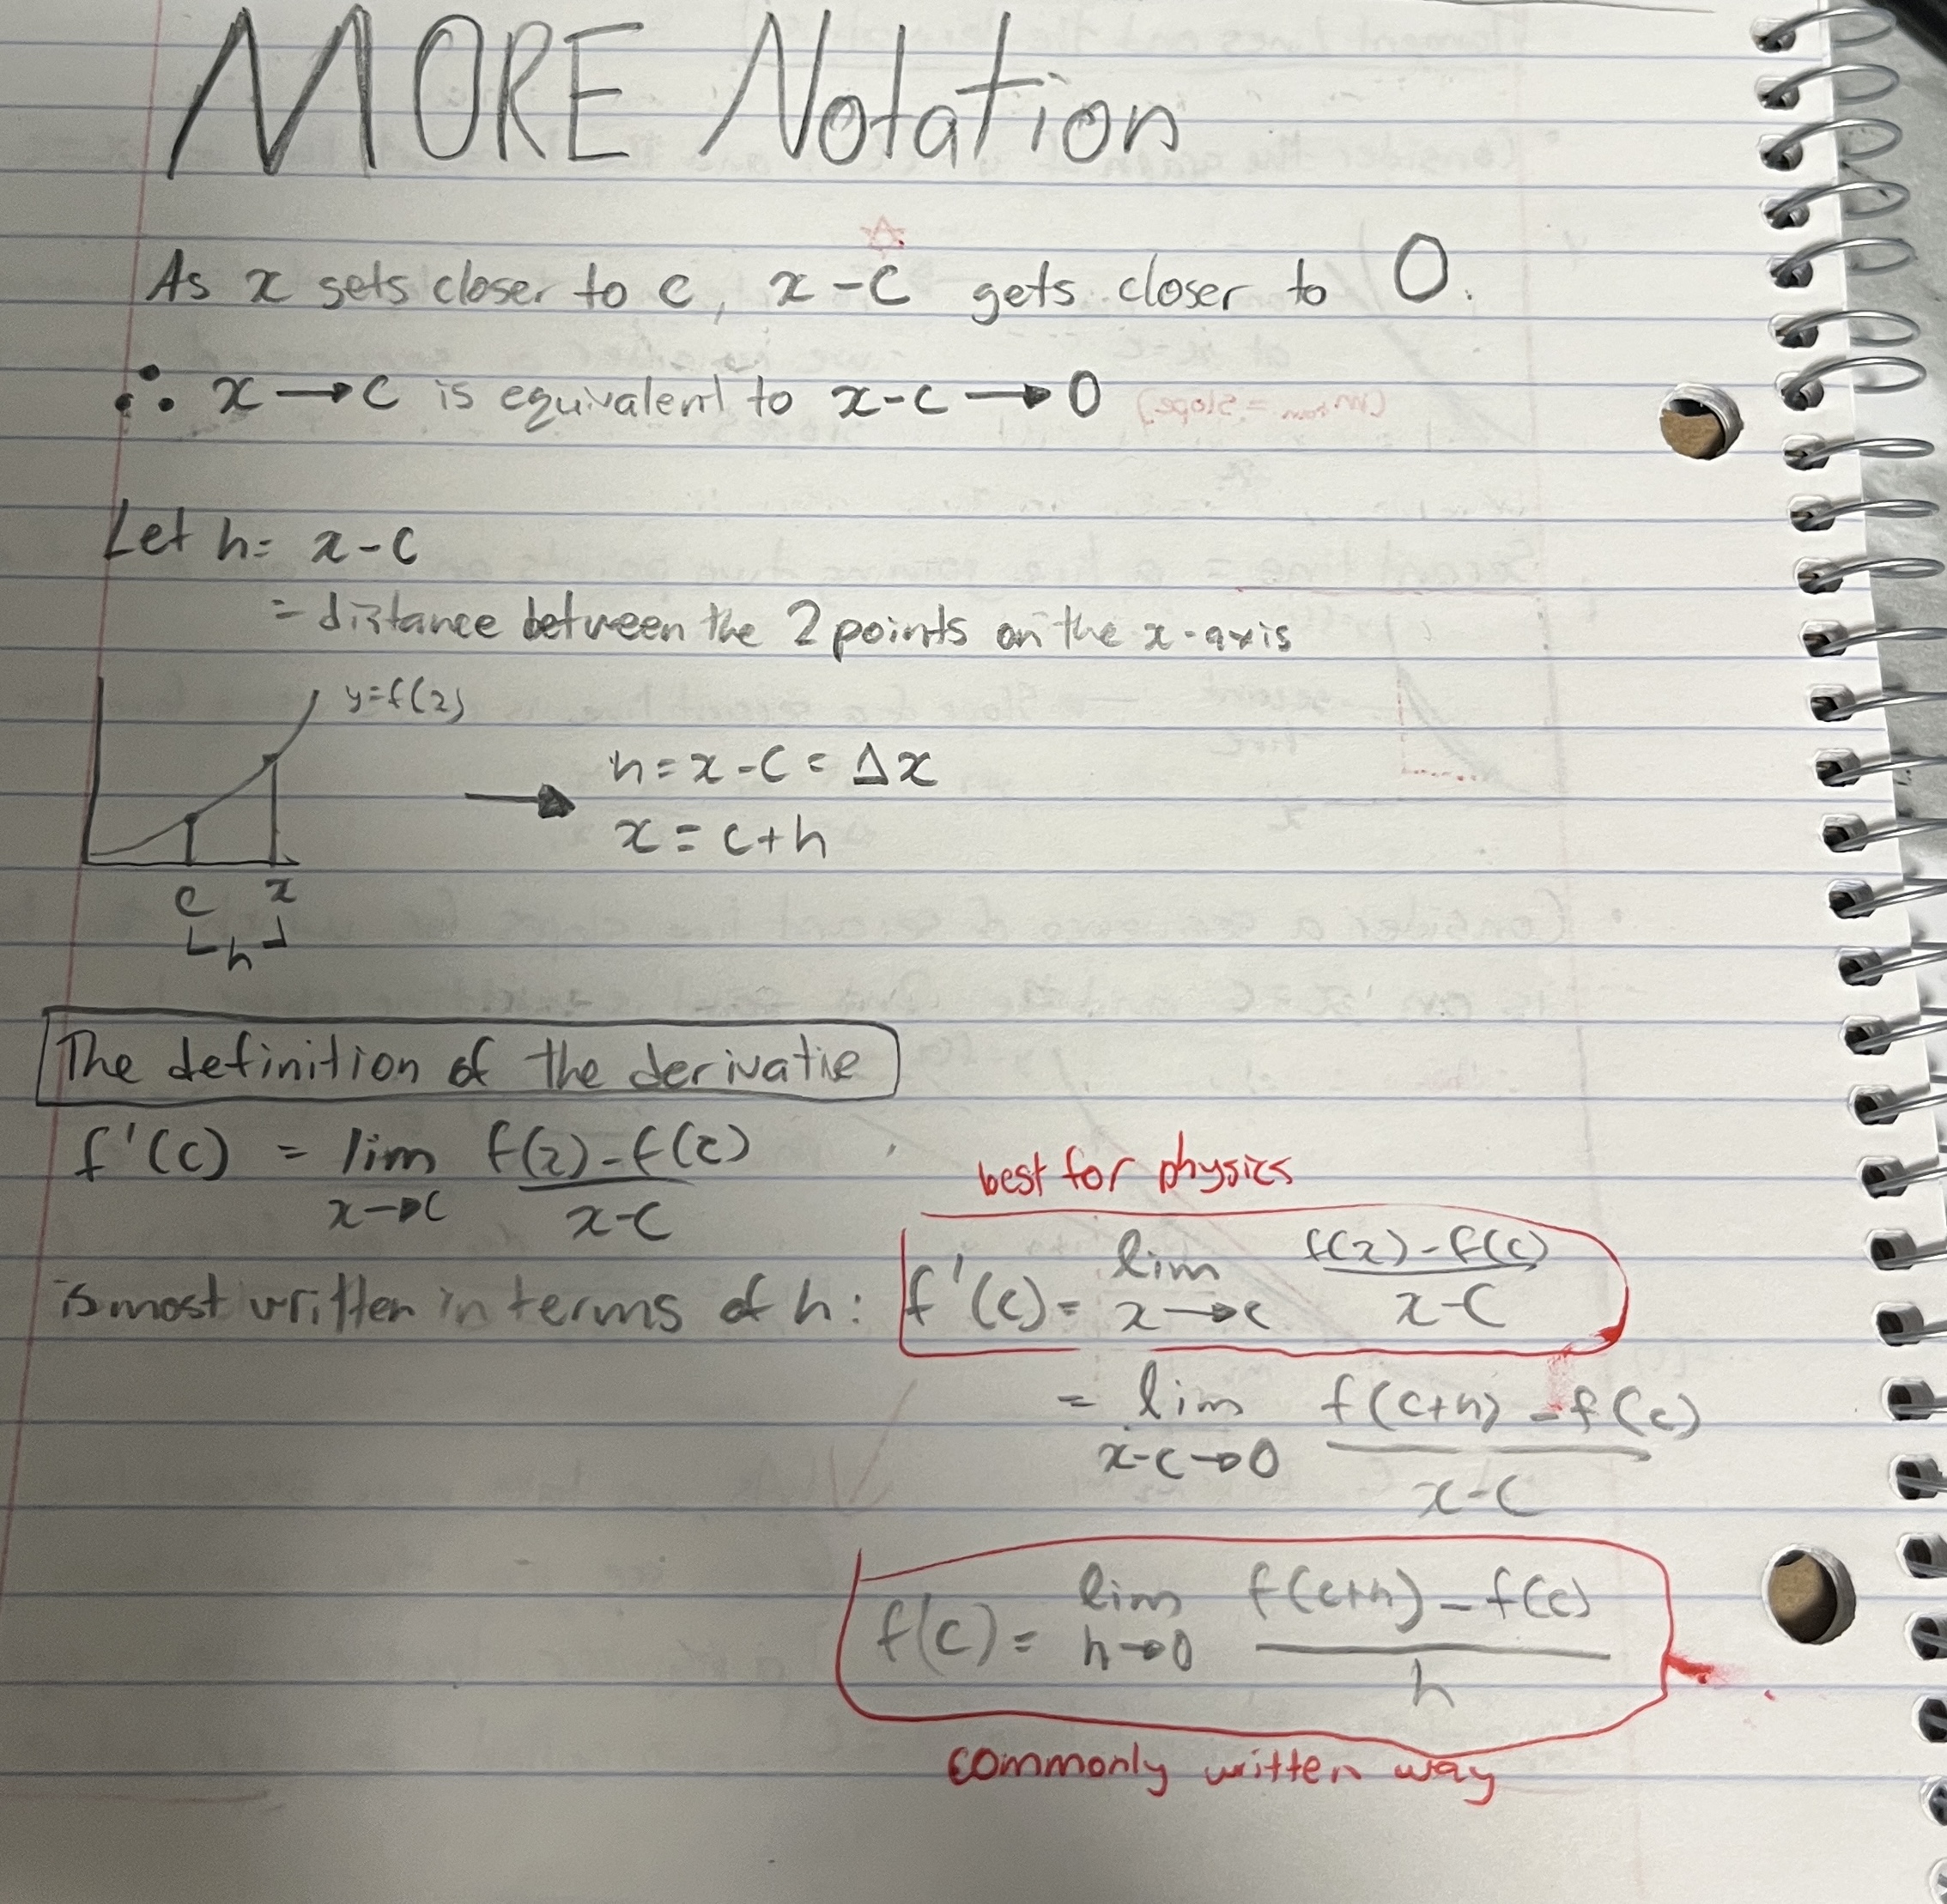 MORE Notation
As x gets closer to c, x-c gets closer to 0.
∴ x→c is equivalent to x-c→0
Let h= x-c
= distance between the 2 points on the x-axis
y=f(x)
h=x-c=Δx
x=c+h
c x
h
The definition of the derivatie
f'(c) = lim x→c f(x)-f(c) / x-c
best for physics
is most written in terms of h: f'(c)= lim x→c f(x)-f(c) / x-c
= lim x-c→0 f(c+h)-f(c) / x-c
f(c)= lim h→0 f(c+h)-f(c) / h
commonly written way